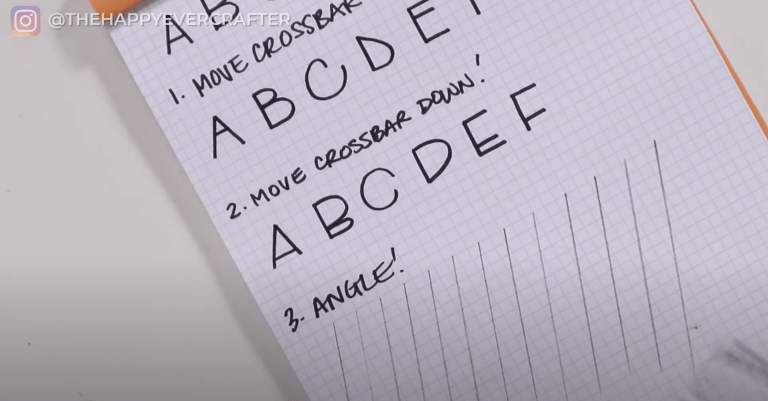 @THEHAPPYEVERCRAFTER
A B
1. MOVE CROSSBAR
A B C D E
2. MOVE CROSSBAR DOWN!
A B C D E F
3. ANGLE!